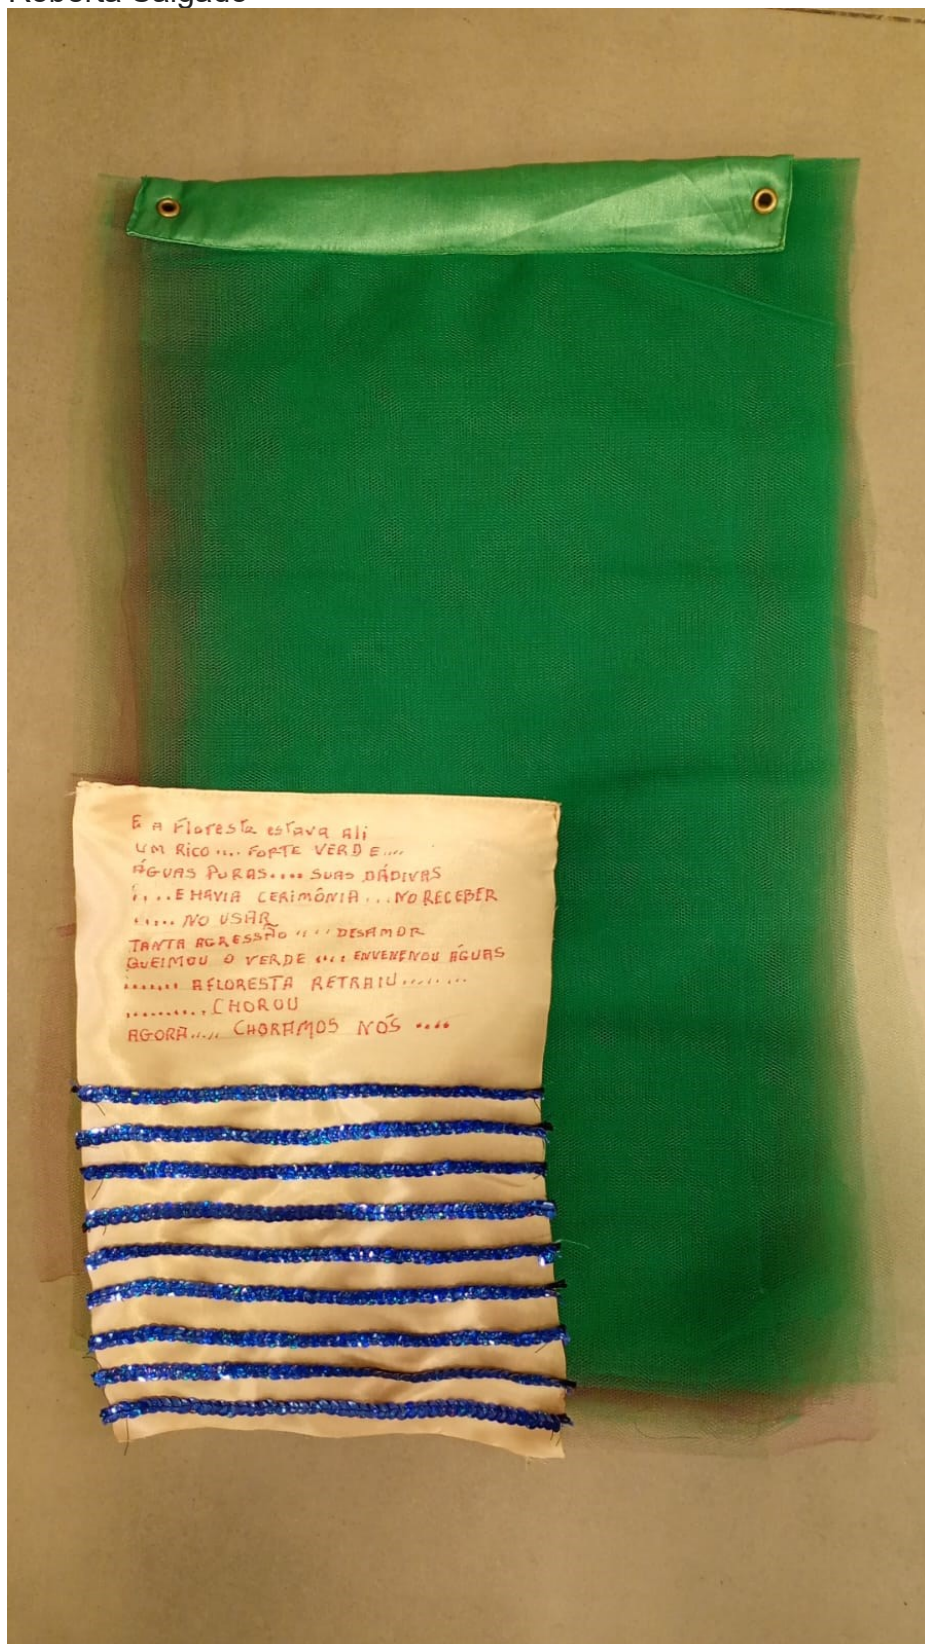 Roberta Salgado
E A Floresta estava Ali
UM RICO .... FORTE VERDE ....
ÁGUAS PURAS .... SUAS DÁDIVAS
..... E HAVIA CERIMÔNIA ... NO RECEBER
..... NO USAR
TANTA AGRESSÃO .... DESAMOR
QUEIMOU O VERDE .... ENVENENOU ÁGUAS
....... A FLORESTA RETRAIU ........
.......... CHOROU
AGORA ..... CHORAMOS NÓS ....